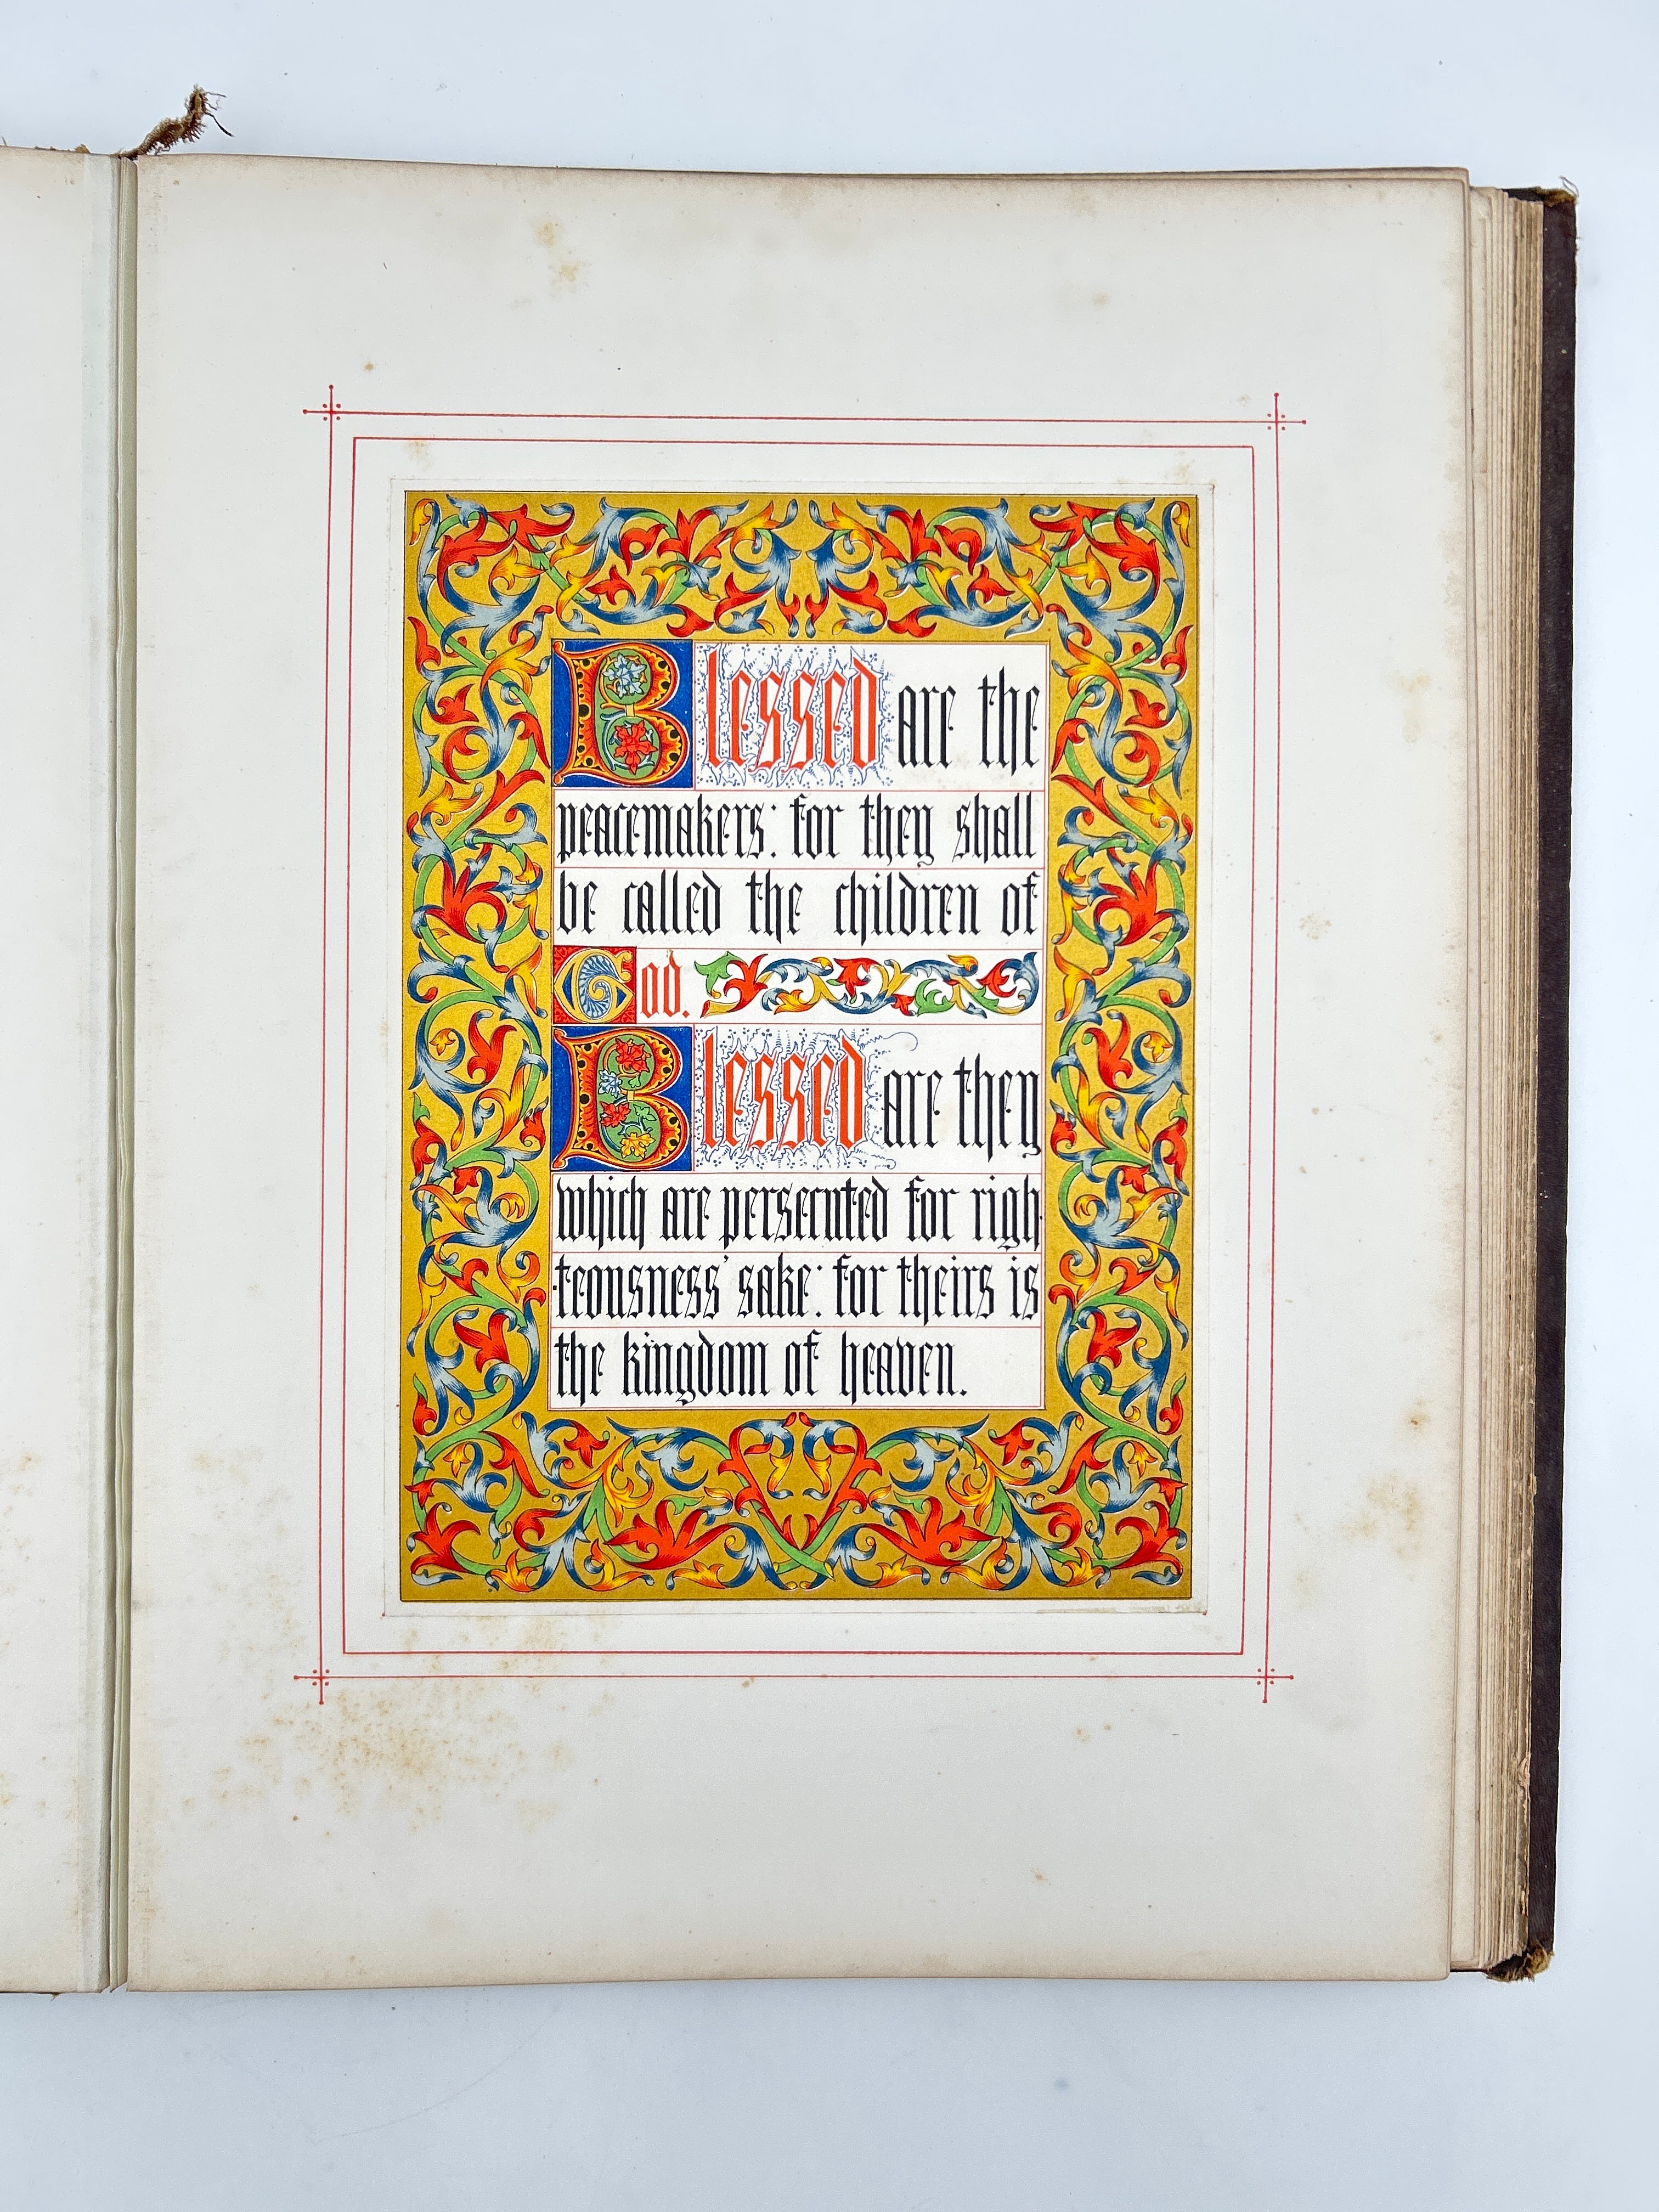 Blessed are the
peacemakers: for they shall
be called the children of
God.
Blessed are they
which are persecuted for righ
teousness' sake: for theirs is
the kingdom of heaven.